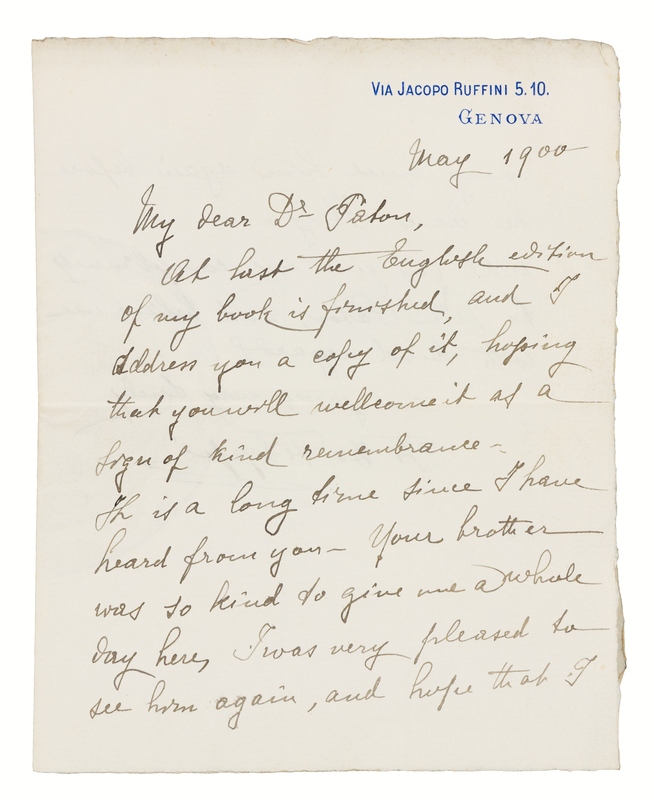 VIA JACOPO RUFFINI 5.10.
GENOVA
May 1900
My dear Dr Paton,
At last the English edition
of my book is finished, and I
address you a copy of it, hoping
that you will wellcome it as a
sign of kind remembrance -
It is a long time since I have
heard from you - Your brother
was so kind to give me a whole
day here, I was very pleased to
see him again, and hope that I